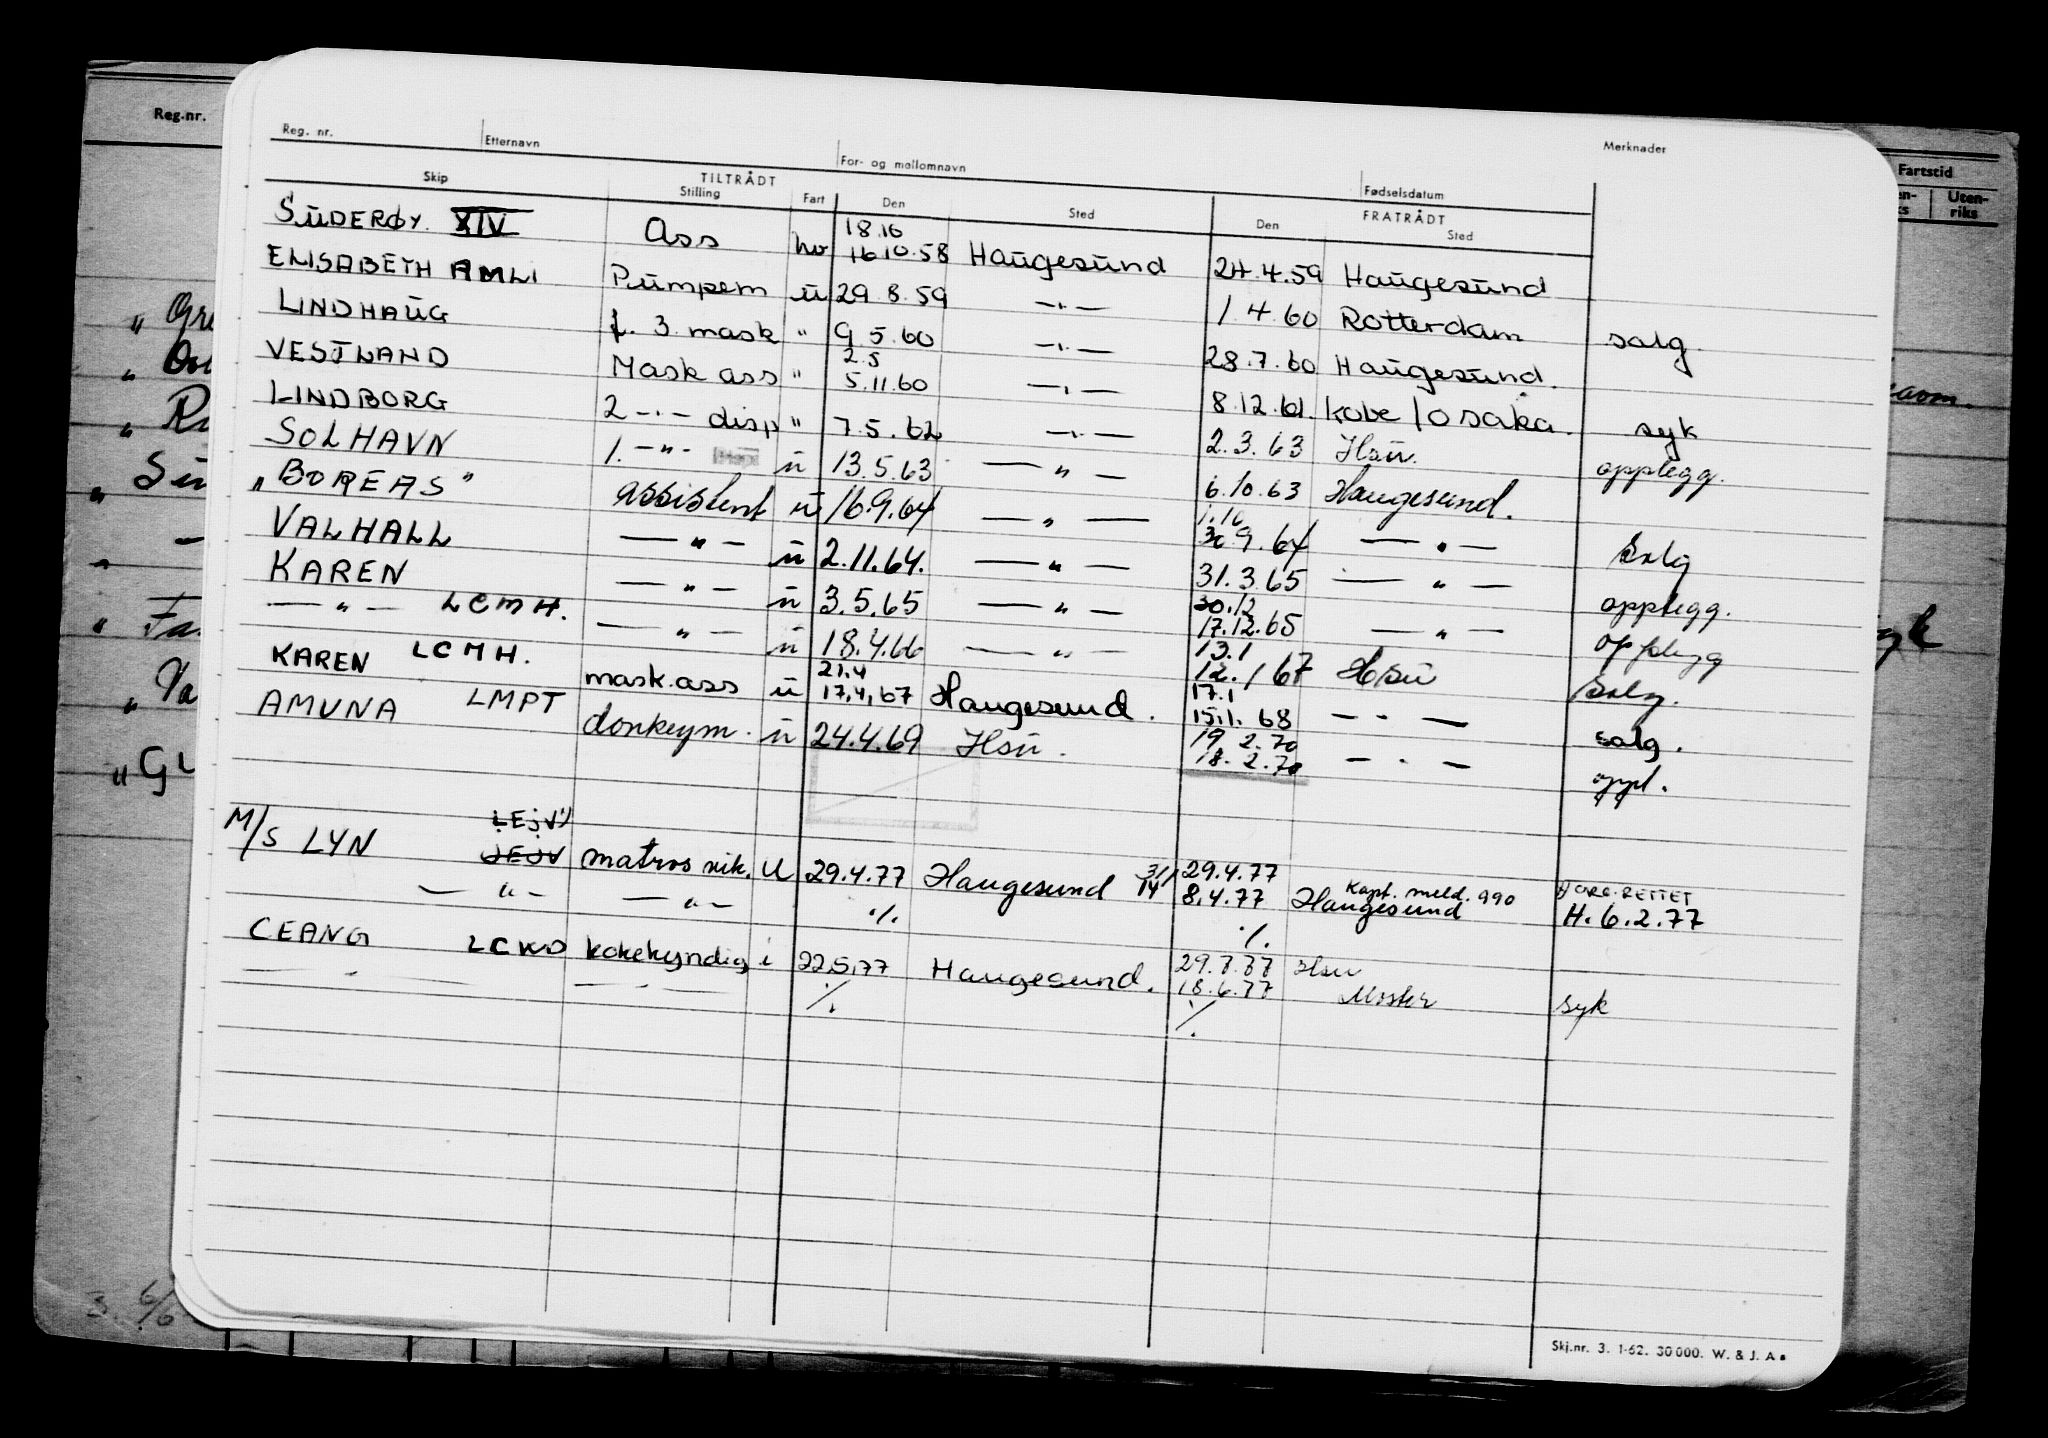 Reg.nr.
Fartstid
Uten-
riks
Reg. nr. Etternavn For- og mellomnavn Fødselsdatum Merknader
TILTRÅDT FRATRÅDT
Skip Stilling Fart Den Sted Den Sted
18.10
SÜDERØY XIV Ass hv 16.10.58 Haugesund 24.4.59 Haugesund
ELISABETH AMLI Pumpem ü 29.8.59 —"— 1.4.60 Rotterdam salg.
LINDHAUG f. 3. mask " 9.5.60 —"— 28.7.60 Haugesund.
2.5
VESTLAND Mask ass " 5.11.60 —"— 8.12.61. Kobe/Osaka. syk
LINDBORG 2 —"— disp " 7.5.62 —"— 2.3.63 Hsü. opplegg.
SOLHAVN 1. —"— ü 13.5.63 —"— 6.10.63 Haugesund.
1.10
"BOREAS" assistent ü 16.9.64 —"— 30.9.64 —"— Salg
VALHALL —"— ü 2.11.64. —"— 31.3.65 —"— opplegg.
30.12
KAREN —"— ü 3.5.65 —"— 17.12.65 —"— opplegg
13.1
—"— LCMH. —"— ü 18.4.66 —"— 12.1 67 Hsü Salg.
21.4 17.1
KAREN LCMH. mask.ass ü 17.4.67 Haugesund. 15.1.68 —"— salg.
19 2.70
AMUNA LMPT donkeym. ü 24.4.69 Hsü. 18.2.70 —"— oppl.
LEJV 1)
M/S LYN JEJV matros nik. U 29.4.77 Haugesund 29.4.77
31/1 14 8.4.77 Kapt. meld. 990 Haugesund 1) ORG. RETTET H. 6.2.77
—"— —"— ./. ./.
CEANG LCWD kokekyndig i 22.5.77 Haugesund. 29.7.77 Hsu
18.6.77 Moster syk
—"— —"— ./. ./.
Skj.nr. 3. 1-62. 30000. W. & J. A s